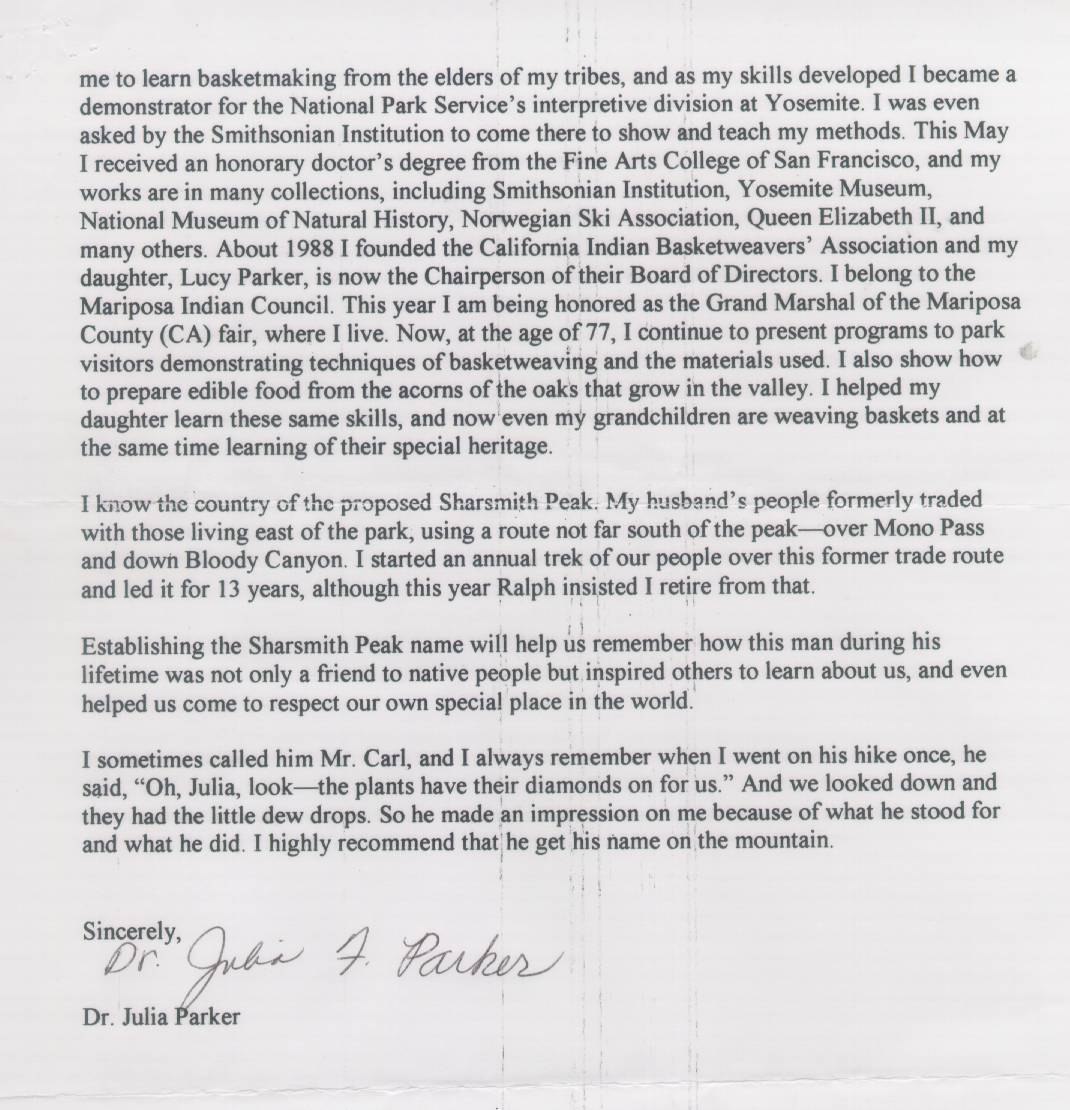 me to learn basketmaking from the elders of my tribes, and as my skills developed I became a
demonstrator for the National Park Service's interpretive division at Yosemite. I was even
asked by the Smithsonian Institution to come there to show and teach my methods. This May
I received an honorary doctor's degree from the Fine Arts College of San Francisco, and my
works are in many collections, including Smithsonian Institution, Yosemite Museum,
National Museum of Natural History, Norwegian Ski Association, Queen Elizabeth II, and
many others. About 1988 I founded the California Indian Basketweavers' Association and my
daughter, Lucy Parker, is now the Chairperson of their Board of Directors. I belong to the
Mariposa Indian Council. This year I am being honored as the Grand Marshal of the Mariposa
County (CA) fair, where I live. Now, at the age of 77, I continue to present programs to park
visitors demonstrating techniques of basketweaving and the materials used. I also show how
to prepare edible food from the acorns of the oaks that grow in the valley. I helped my
daughter learn these same skills, and now even my grandchildren are weaving baskets and at
the same time learning of their special heritage.

I know the country of the proposed Sharsmith Peak. My husband's people formerly traded
with those living east of the park, using a route not far south of the peak—over Mono Pass
and down Bloody Canyon. I started an annual trek of our people over this former trade route
and led it for 13 years, although this year Ralph insisted I retire from that.

Establishing the Sharsmith Peak name will help us remember how this man during his
lifetime was not only a friend to native people but inspired others to learn about us, and even
helped us come to respect our own special place in the world.

I sometimes called him Mr. Carl, and I always remember when I went on his hike once, he
said, “Oh, Julia, look—the plants have their diamonds on for us.” And we looked down and
they had the little dew drops. So he made an impression on me because of what he stood for
and what he did. I highly recommend that he get his name on the mountain.

Sincerely,
Dr. Julia F. Parker
Dr. Julia Parker